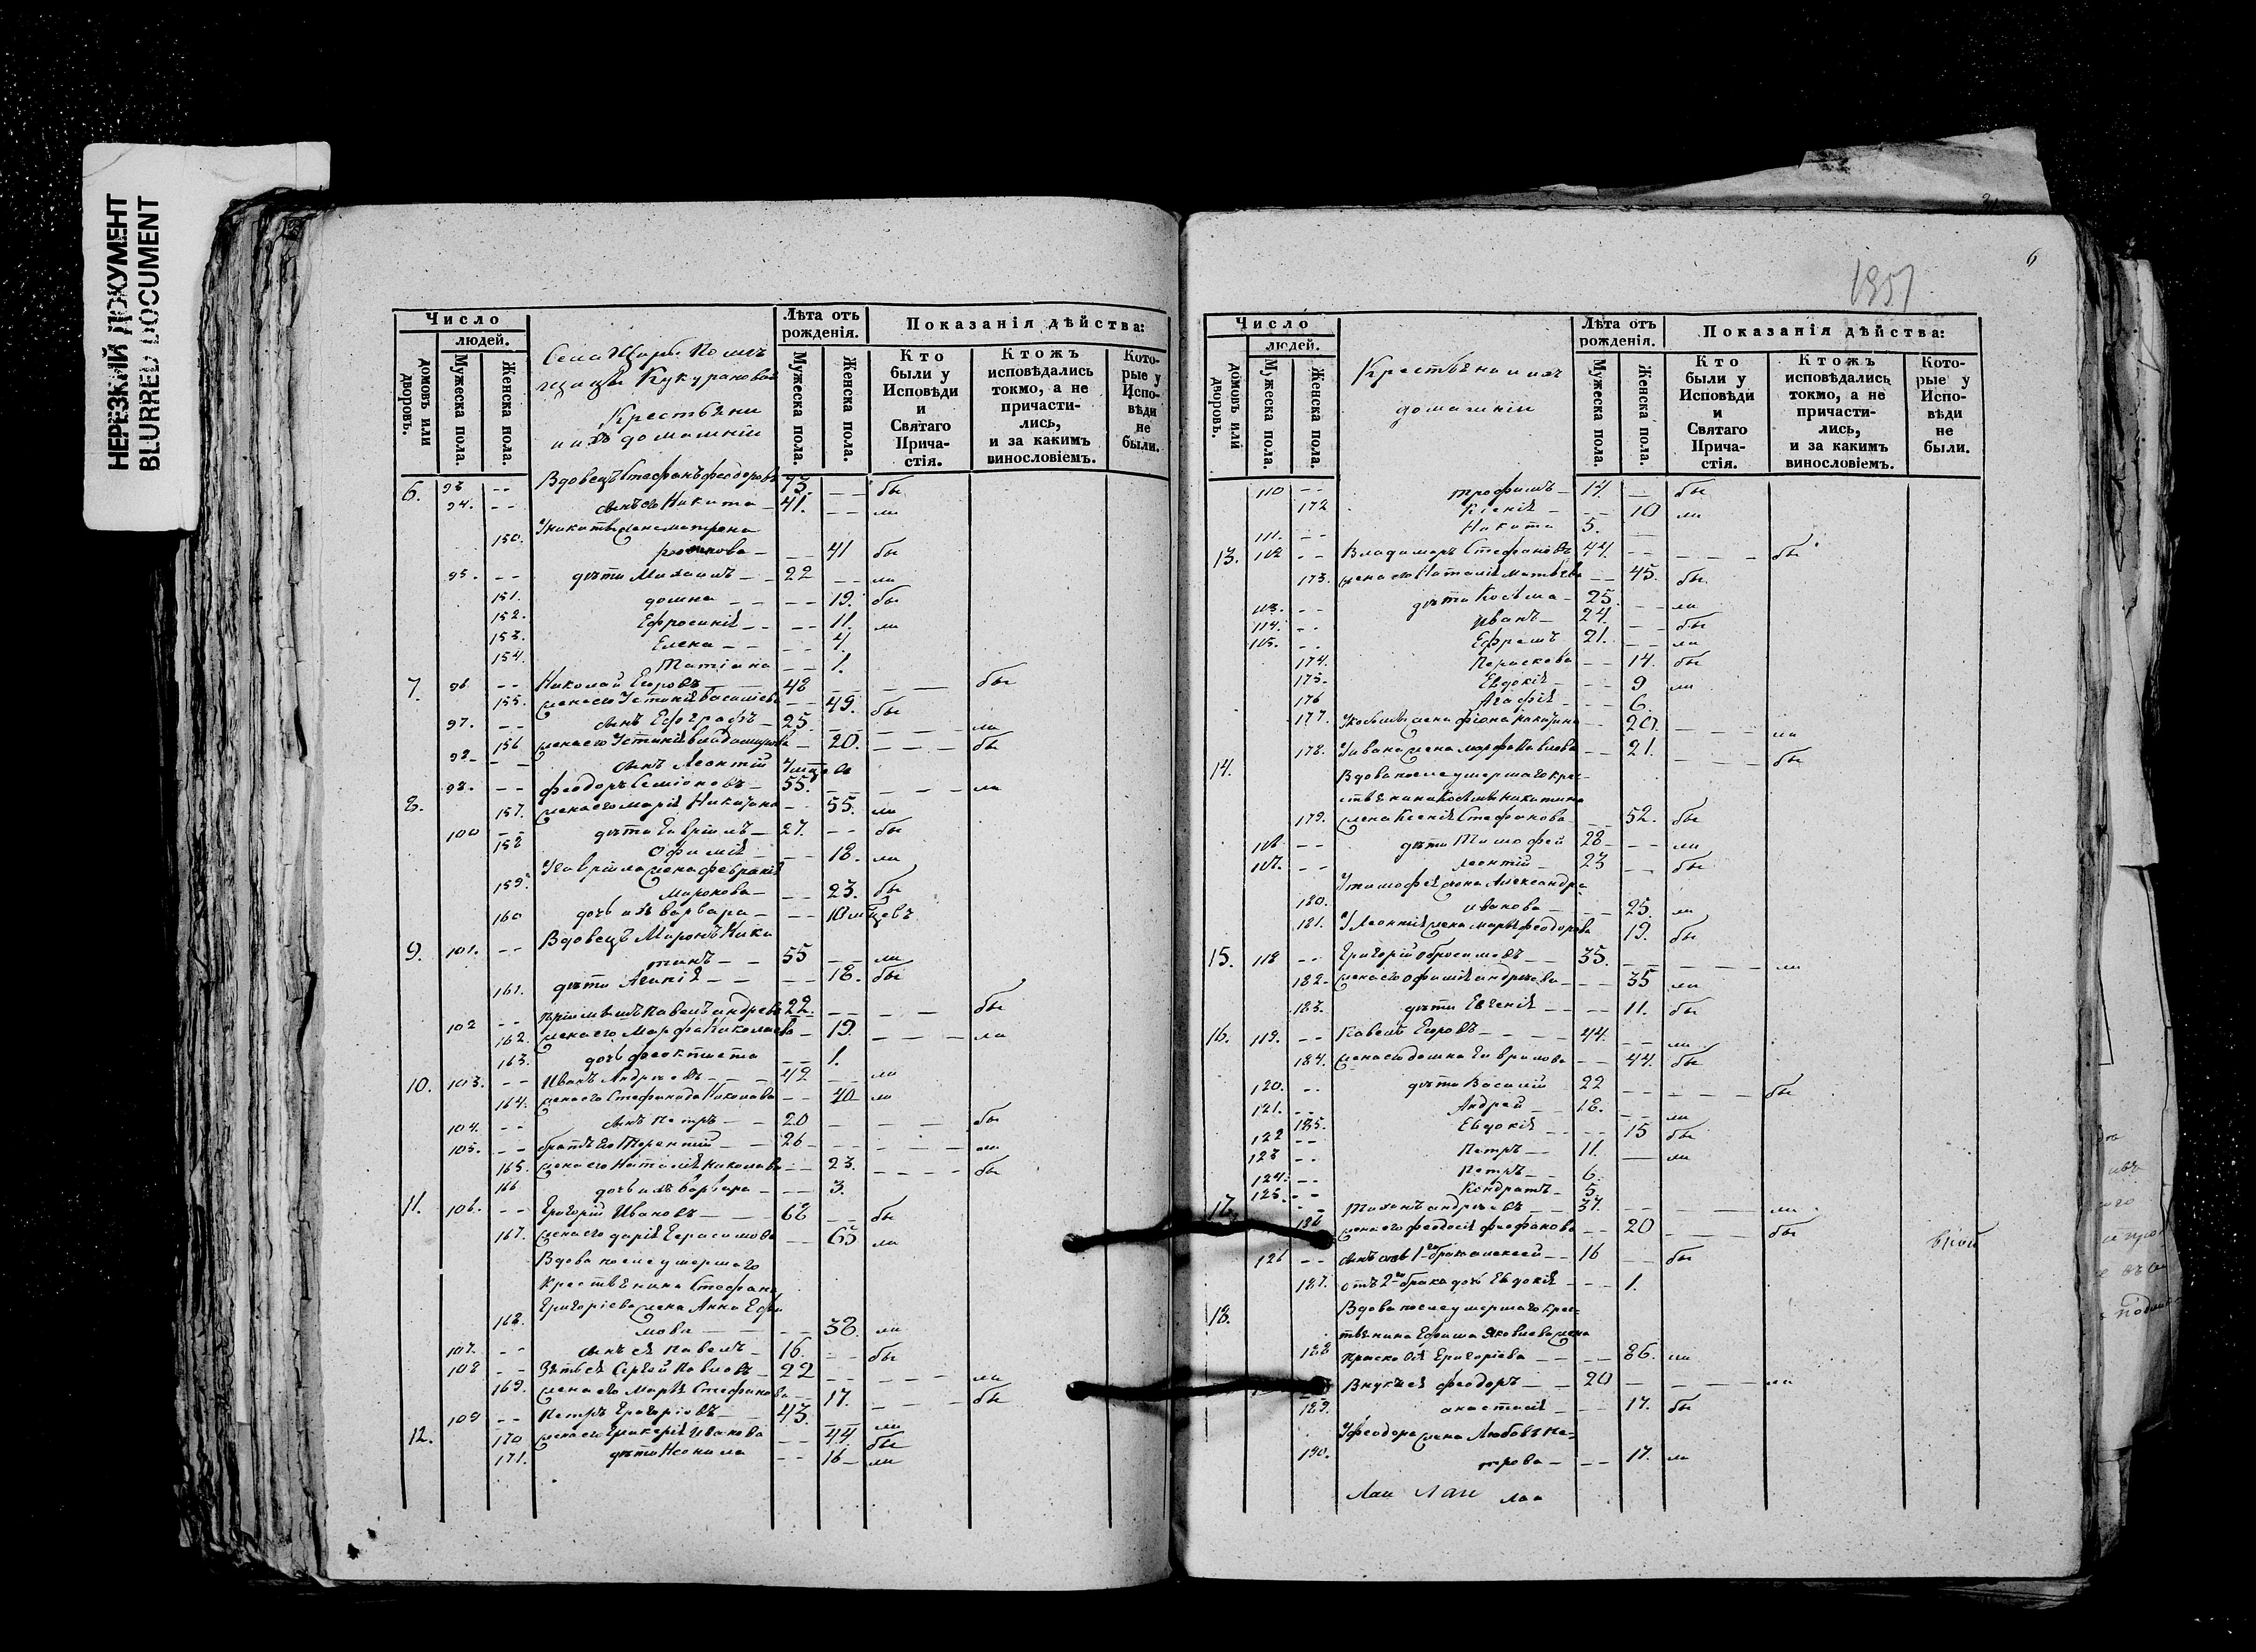 НЕРЕЗКИЙ ДОКУМЕНТ
BLURRED DOCUMENT
Число
людей.
домовъ или дворовъ.
Мужеска пола.
Женска пола.
Крестьяни
и ихъ домашніи
Лѣта отъ рожденія.
Мужеска пола.
Женска пола.
Показанія дѣйства:
Кто были у Исповѣди и Святаго Прича-стія.
Ктожъ исповѣдались токмо, а не причасти-лись, и за какимъ винословіемъ.
Кото-рые у Испо-вѣди не были.
6. 93 -- Вдовецъ Стефанъ Феодоровъ 73. -- бы
94. -- сынъ его Никита - 41. -- ли
У Никиты жена Матрона
150. -- 41 бы
95. -- дѣти Михаилъ -- 22 -- ли
151. домна -- 19. бы
152. Ефросинія -- 11. ли
153. Елена -- 4
154. Татіана -- 1.
7. 96 -- Николай Егоровъ 48 -- бы
155. жена его Устинія Василіева -- 49. бы
97. -- сынъ Евграфъ - 25 -- ли
156 жена его Устинія -- 20. -- бы
98 -- сынъ Леонтій
-- Феодоръ Семіоновъ - 55. -- ли
8. 157. жена его Марія -- 55. ли
100 -- дѣти Гавріилъ - 27. -- бы
158 Офимія -- 18. ли
У Гавріила жена
159. Миронова -- 23. бы
160 дочь ихъ Варвара -- 10 мѣсецевъ
Вдовецъ Миронъ Ники
9. 101. -- тинъ -- 55 -- ли
161. дѣти -- 18. бы
102 -- Павелъ Андреевъ 22. -- бы
162. жена его Марфа Николаева - 19. -- ли
163. дочь Феоктиста -- 1.
10. 103. -- Иванъ Андреевъ -- 42 -- ли
164. жена его Стефанида Николаева -- 40 ли
104. -- сынъ Петръ -- 20 -- бы
105. -- братъ его Терентій -- 26 -- ли
165. жена его Наталія Николаева -- 23. -- бы
166 дочь ихъ Варвара -- 3.
11. 106. -- Григорій Ивановъ -- 68 -- бы
167. жена его Дарія Герасимова -- 65 ли
Вдова после умершаго
Крестьянина Стефана
Григоріева жена Анна Ефи
168. мова -- 38. ли
107. -- сынъ ея Павелъ - 16. -- бы
108 -- Зять ея Сергѣй Павловъ - 22 -- ли
169. жена его Марья Стефанова -- 17. -- бы
109 -- Петръ Григоріевъ -- 43. -- ли
12. 170 жена его Гликерія Иванова -- 44 бы
171. дѣти Неонила -- 16 - ли
1851
6
Число
людей.
домовъ или дворовъ.
Мужеска пола.
Женска пола.
Крестьяни и ихъ
домашніи
Лѣта отъ рожденія.
Мужеска пола.
Женска пола.
Показанія дѣйства:
Кто были у Исповѣди и Святаго Прича-стія.
Ктожъ исповѣдались токмо, а не причасти-лись, и за какимъ винословіемъ.
Кото-рые у Испо-вѣди не были.
110 -- Трофимъ - 14. -- бы
172 Ксенія -- 10 ли
111. -- Никита 5. --
13. 112 -- Владимиръ Стефановъ 44. -- бы
173. жена его Наталія Матвѣева -- 45. бы
113. -- дѣти Косьма - 25. -- ли
114. -- Иванъ - 24. -- бы
115. -- Ефремъ 21. -- ли
174. Параскева -- 14. бы
175. Евдокія -- 9 ли
176 Агафія -- 6.
177. У Косьмы жена -- 20. -- ли
178. У Ивана жена Марфа Павлова -- 21. -- бы
14. Вдова после умершаго кре-
стьянина Косьмы Никитина
179. жена Ксенія Стефанова -- 52. бы
116 -- дѣти Тимофей 28 -- ли
117. -- Леонтій - 23 -- бы
У Тимофея жена Александра
180. Иванова -- 25. ли
181. У Леонтія жена Марья Феодорова 19. бы
15. 118 -- Григорій -- 35. -- ли
182. жена его Офимія Андреева -- 35 ли
183. дѣти Евгенія -- 11. бы
16. 119. -- Павелъ Егоровъ -- 44. -- ли
184. жена его Домна Гаврилова -- 44. бы
120. -- дѣти Василій 22 -- бы
121. -- Андрей -- 18. -- ли
185. Евдокія -- 15 бы
122 -- Петръ -- 11. -- ли
123 -- Петръ -- 6.
124. -- Кондратъ - 5.
125. -- Андреевъ -- 37. -- ли
17. 186 жена его Феодосія -- 20 -- бы
126 -- сынъ отъ 1го брака Алексей -- 16 -- бы
187. отъ 2го брака дочь Евдокія -- 1.
18. Вдова после умершаго крес-
тьянина Ефима Яковлева жена
188 Прасковія Григоріева -- 86. ли
Внукъ ея Феодоръ -- 20 -- ли
189. Анастасія -- 17. бы
У Феодора жена Любовь Пе-
190. трова -- 17. ли